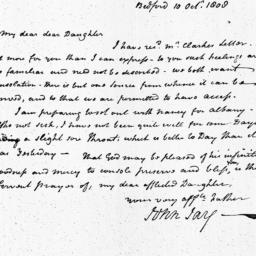 Bedford 10 Oct. 1808
My dear dear Daughter
I have rec.d Mr. Clarkes Letter.
t more for you than I can express. to you such feelings are
o familiar and need not be described. we both want
nsolation. there is but one source from whence it can be
rived, and to that we are permitted to have access.
I am preparing to set out with nancy for Albany.
tho not sick, I have not been quite well for some Days
a slight sore Throat, which is better to Day than it
as Yesterday — that God may be pleased of his infinite
oodness and mercy to console preserve and bless is the
ervent Prayer of, my dear afflicted Daughter,
your very aff.te father
John Jay